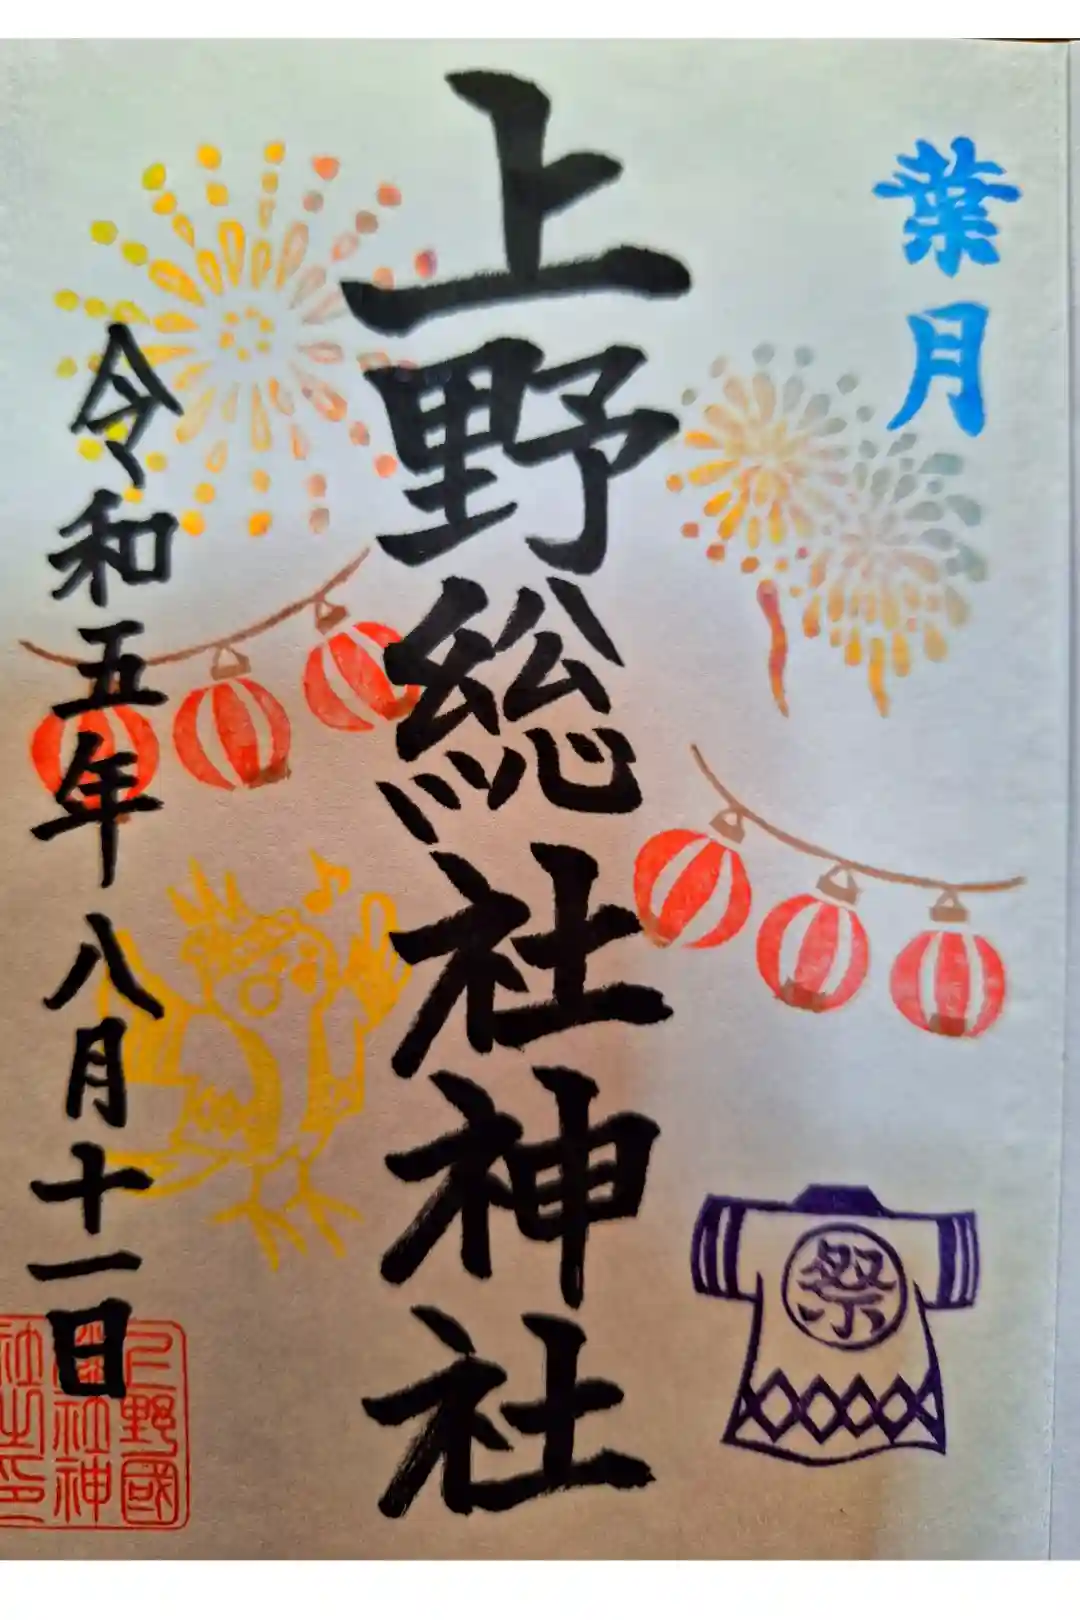 葉月
上野総社神社
令和五年八月十一日
祭
上野國
総社神
社之印